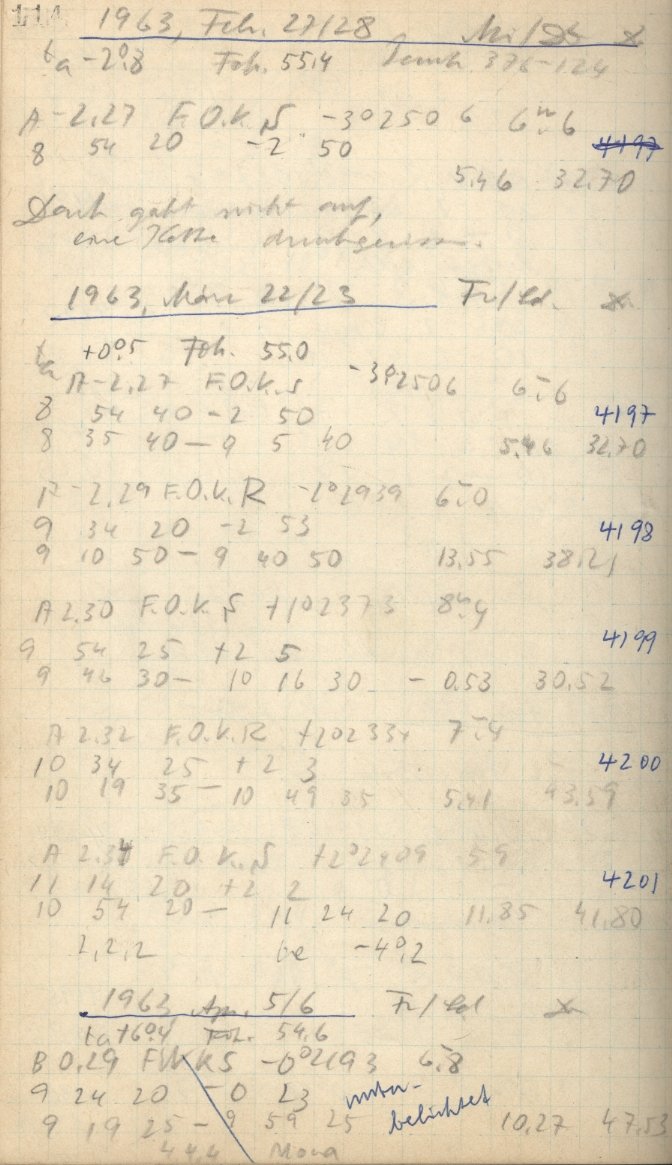 114
1963, Feb. 27/28 Mi/Do
ta -2°.8 Fok. 55.4 376-124
A-2.27 F.O.K.S -3°2506 6m.6
8 54 20 -2 50 4197
5.46 32.70
Dach geht nicht auf,
eine Kette durchgerissen.
1963, März 22/23 Fr/Sd.
ta +0°.5 Fok. 55.0
A-2.27 F.O.K.S -3°2506 6m.6
8 54 40 -2 50 4197
8 35 40 - 9 5 40 5.46 32.70
A-2.29 F.O.K.R -2°2939 6m.0
9 34 20 -2 53 4198
9 10 50 - 9 40 50 13.55 38.21
A 2.30 F.O.K.S +1°2373 8m.4
9 54 25 +2 5 4199
9 46 30 - 10 16 30 - 0.53 30.52
A 2.32 F.O.K.R +2°2334 7m.4
10 34 25 +2 3 4200
10 19 35 - 10 49 35 5.41 43.59
A 2.34 F.O.K.S +2°2409 5.9
11 14 20 +2 2 4201
10 54 20 - 11 24 20 11.85 41.80
2,2,2 te -4°.2
1963, Apr. 5/6 Fr/Sd
ta +6°.4 Fok. 54.6
B 0.29 F.W.K.S -0°2193 6m.8
9 24 20 -0 23 unter-
9 19 25 - 9 59 25 belichtet 10.27 47.53
4,4,4 Mond